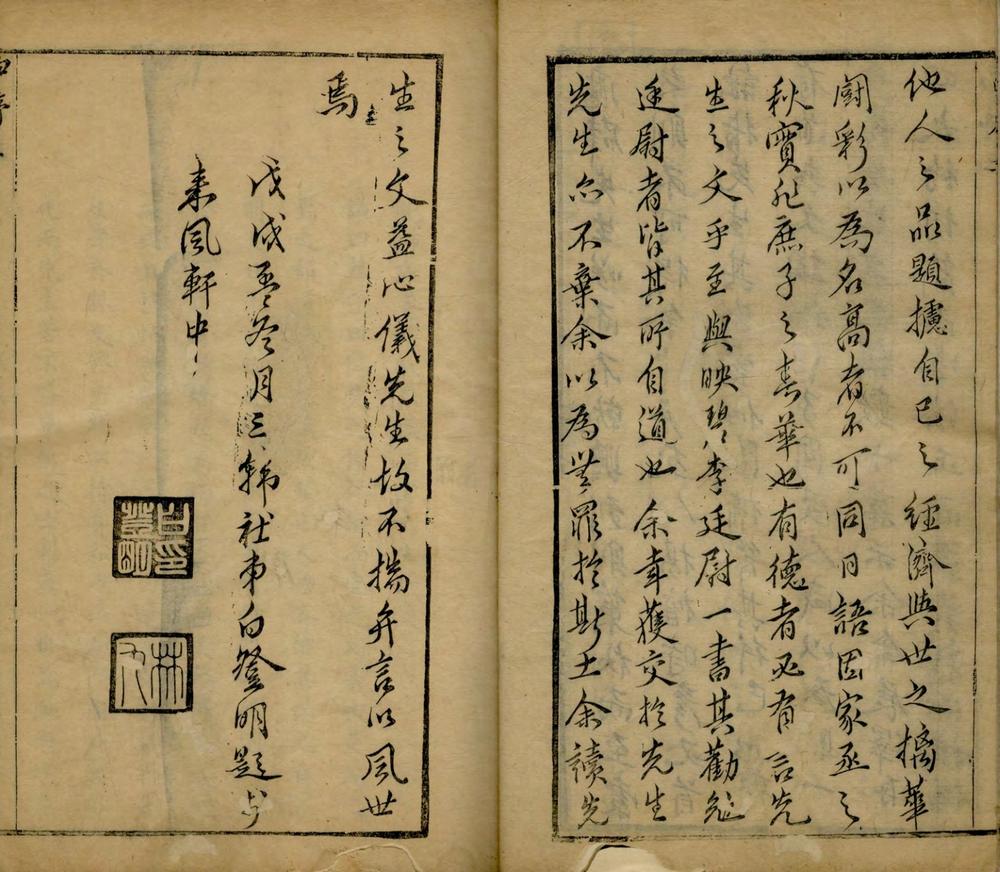 他人之品題攄自己之經濟與世之摛華
鬬彩以為名高者不可同日語因家丞之
秋實非庶子之春華也有德者必有言先
生之文乎至與映碧李廷尉一書其勸勉
廷尉者皆其所自道也余幸獲交於先生
先生亦不棄余以為無罪於斯土余讀先
生之文益心儀先生故不揣弁言以風世
焉
戊戌孟冬月三韓社弟白登明題於
來風軒中
白登明印
林九